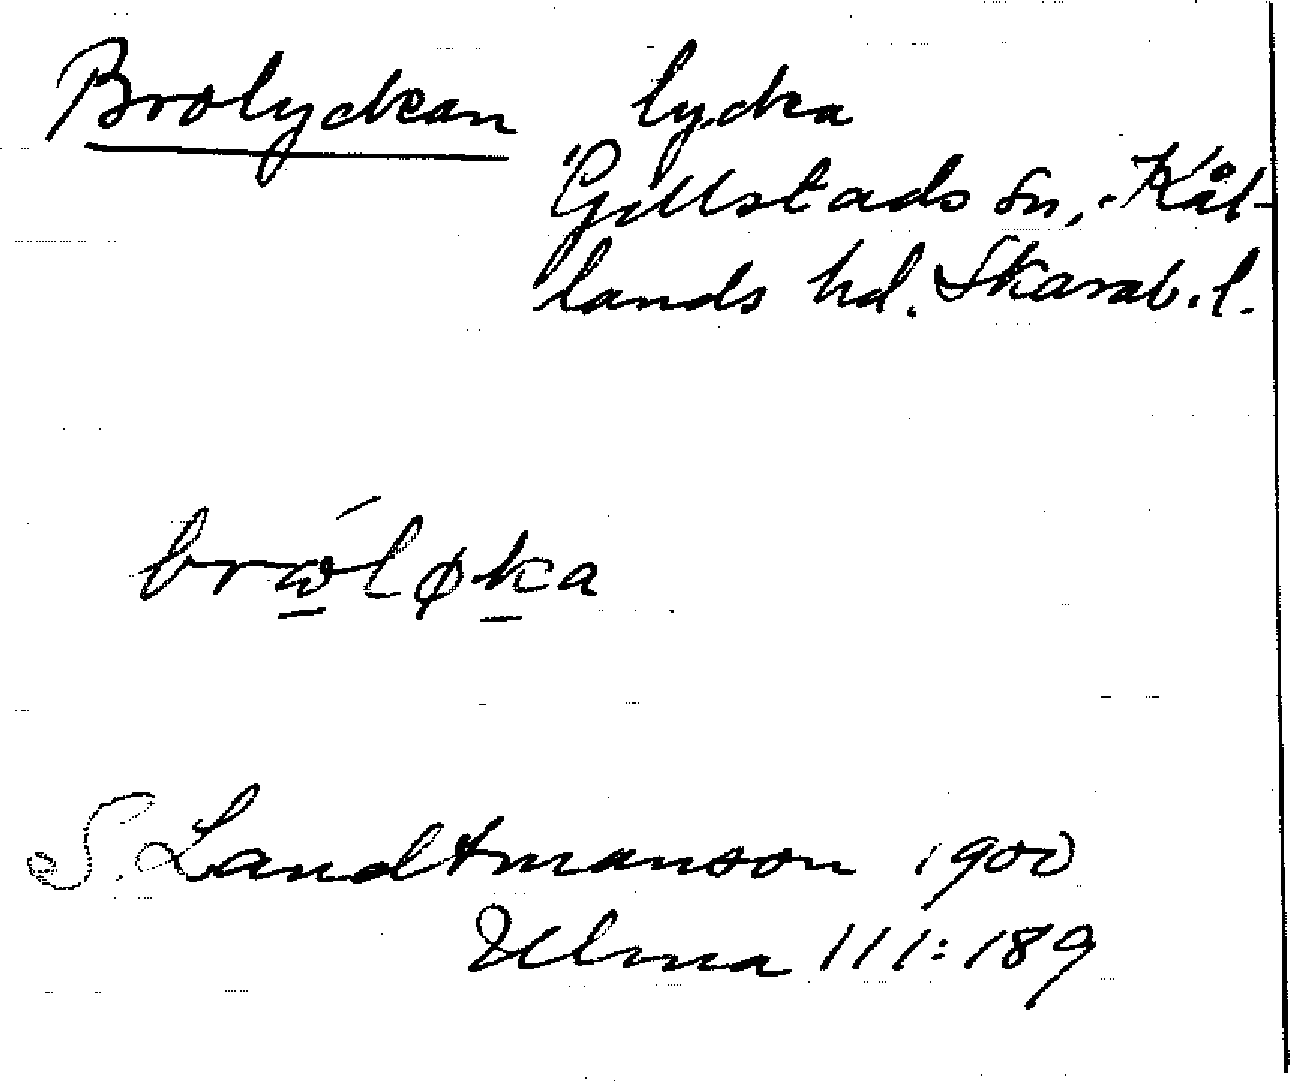 Brolyckan lycka
Gillstads sn, Kål-
lands hd. Skarab. l.
brώløka
S. Landtmanson 1900
Ulma 111:189